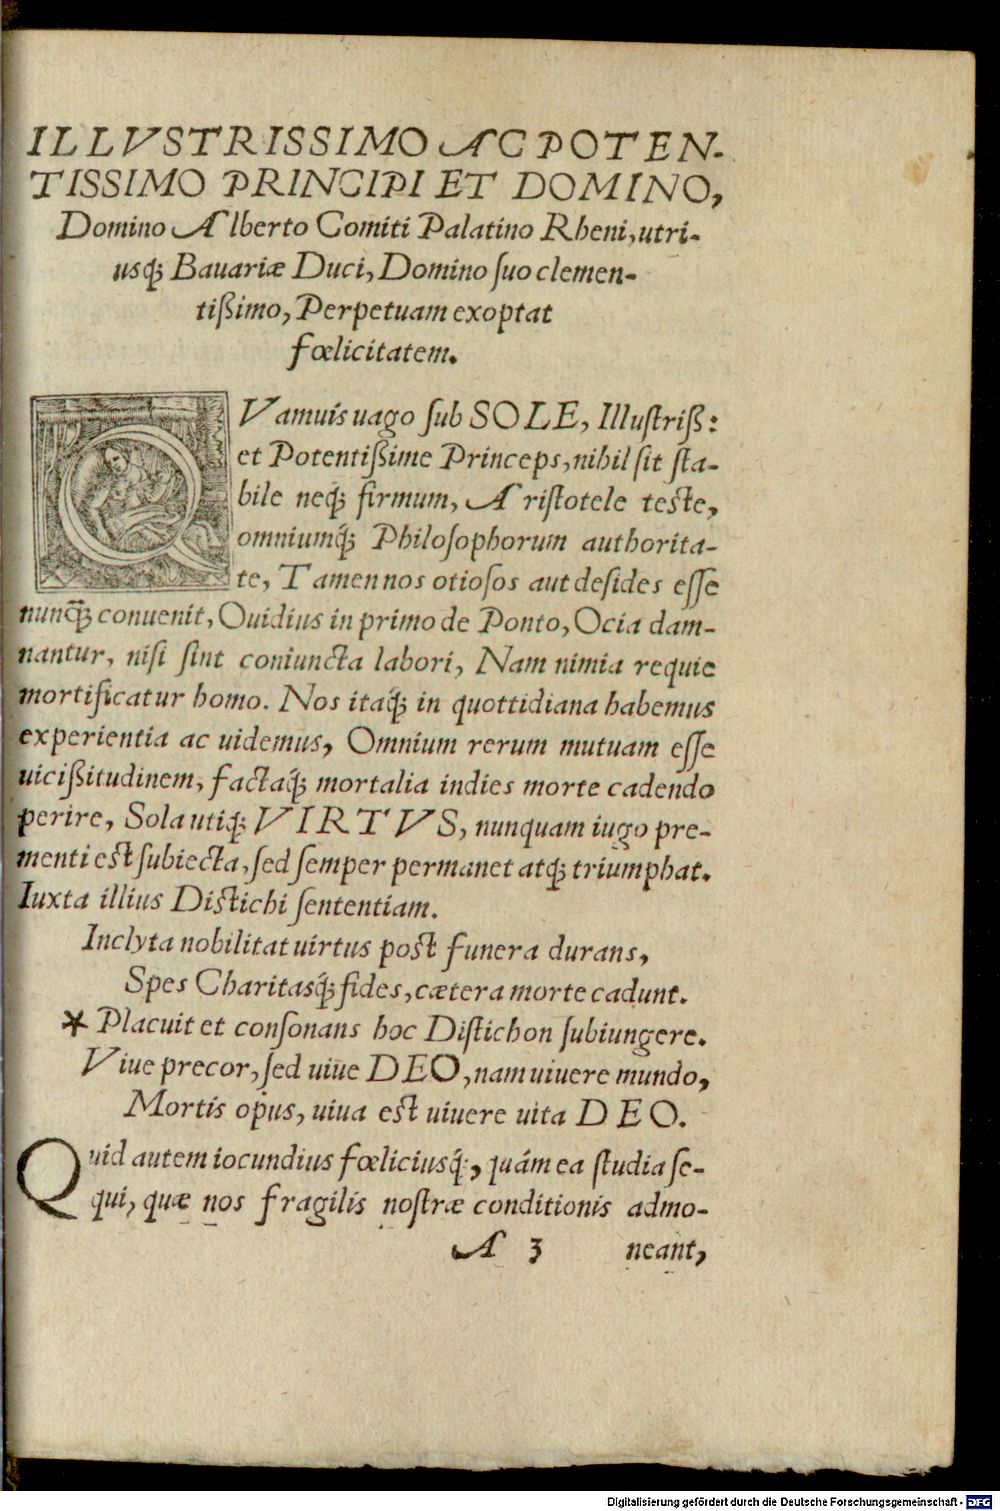 ILLVSTRISSIMO AC POTEN-
TISSIMO PRINCIPI ET DOMINO,
Domino Alberto Comiti Palatino Rheni, utri-
usq́; Bauariæ Duci, Domino ſuo clemen-
tißimo, Perpetuam exoptat
fœlicitatem.
QVamuis uago ſub SOLE, Illuſtriß:
et Potentißime Princeps, nihil ſit ſta-
bile neq́; firmum, Ariſtotele teſte,
omniumq́; Philoſophorum authorita-
te, Tamen nos otioſos aut deſides eſſe
nunq̃; conuenit, Ouidius in primo de Ponto, Ocia dam-
nantur, niſi ſint coniuncta labori, Nam nimia requie
mortificatur homo. Nos itaq́; in quottidiana habemus
experientia ac uidemus, Omnium rerum mutuam eſſe
uicißitudinem, factaq́; mortalia indies morte cadendo
perire, Sola utiq; VIRTVS, nunquam iugo pre-
menti eſt ſubiecta, ſed ſemper permanet atq́; triumphat.
Iuxta illius Diſtichi ſententiam.
Inclyta nobilitat uirtus poſt funera durans,
Spes Charitasq́; fides, cætera morte cadunt.
* Placuit et conſonans hoc Diſtichon ſubiungere.
Viue precor, ſed uiue DEO, nam uiuere mundo,
Mortis opus, uiua eſt uiuere uita DEO.
Quid autem iocundius fœliciusq́;, quám ea ſtudia ſe-
qui, quæ nos fragilis noſtræ conditionis admo-
A 3 neant,
Digitalisierung gefördert durch die Deutsche Forschungsgemeinschaft - DFG